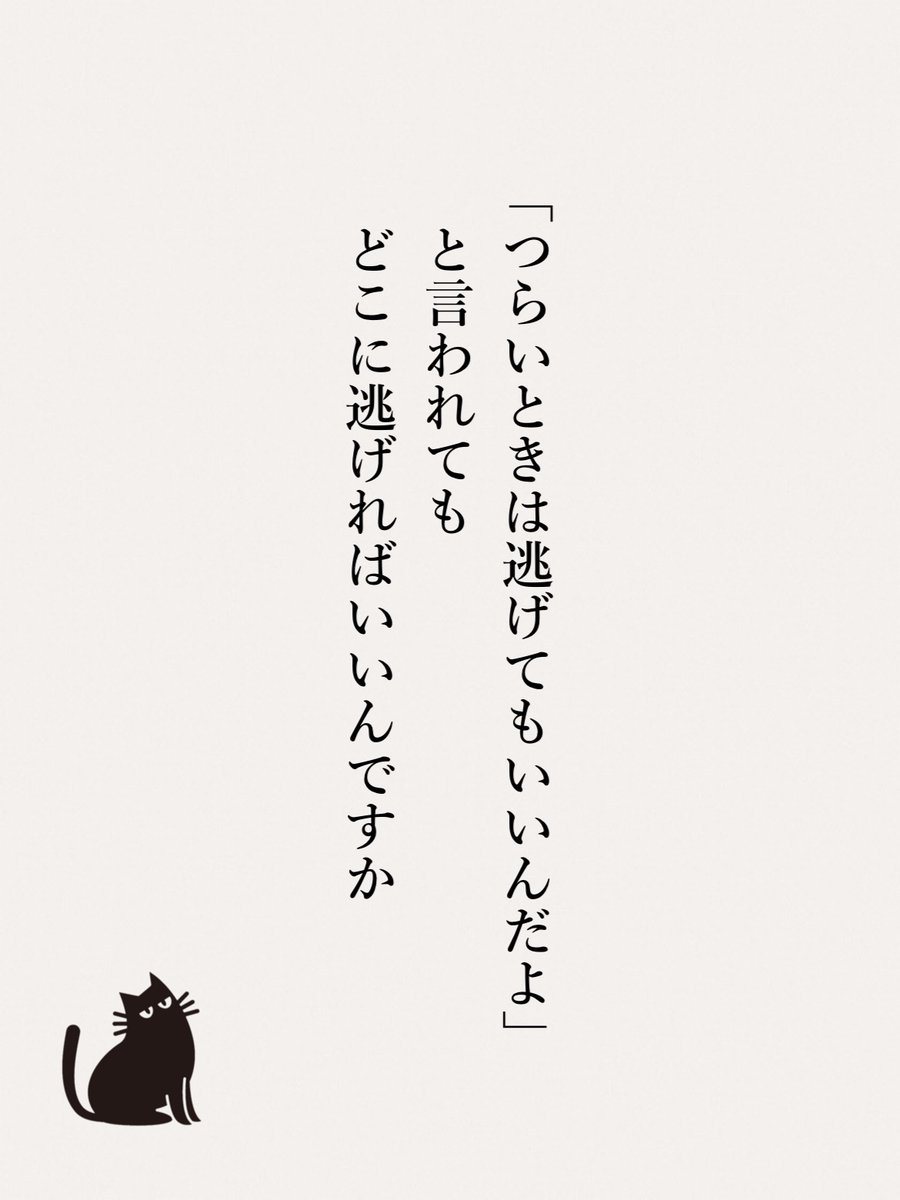 「つらいときは逃げてもいいんだよ」
と言われても
どこに逃げればいいんですか